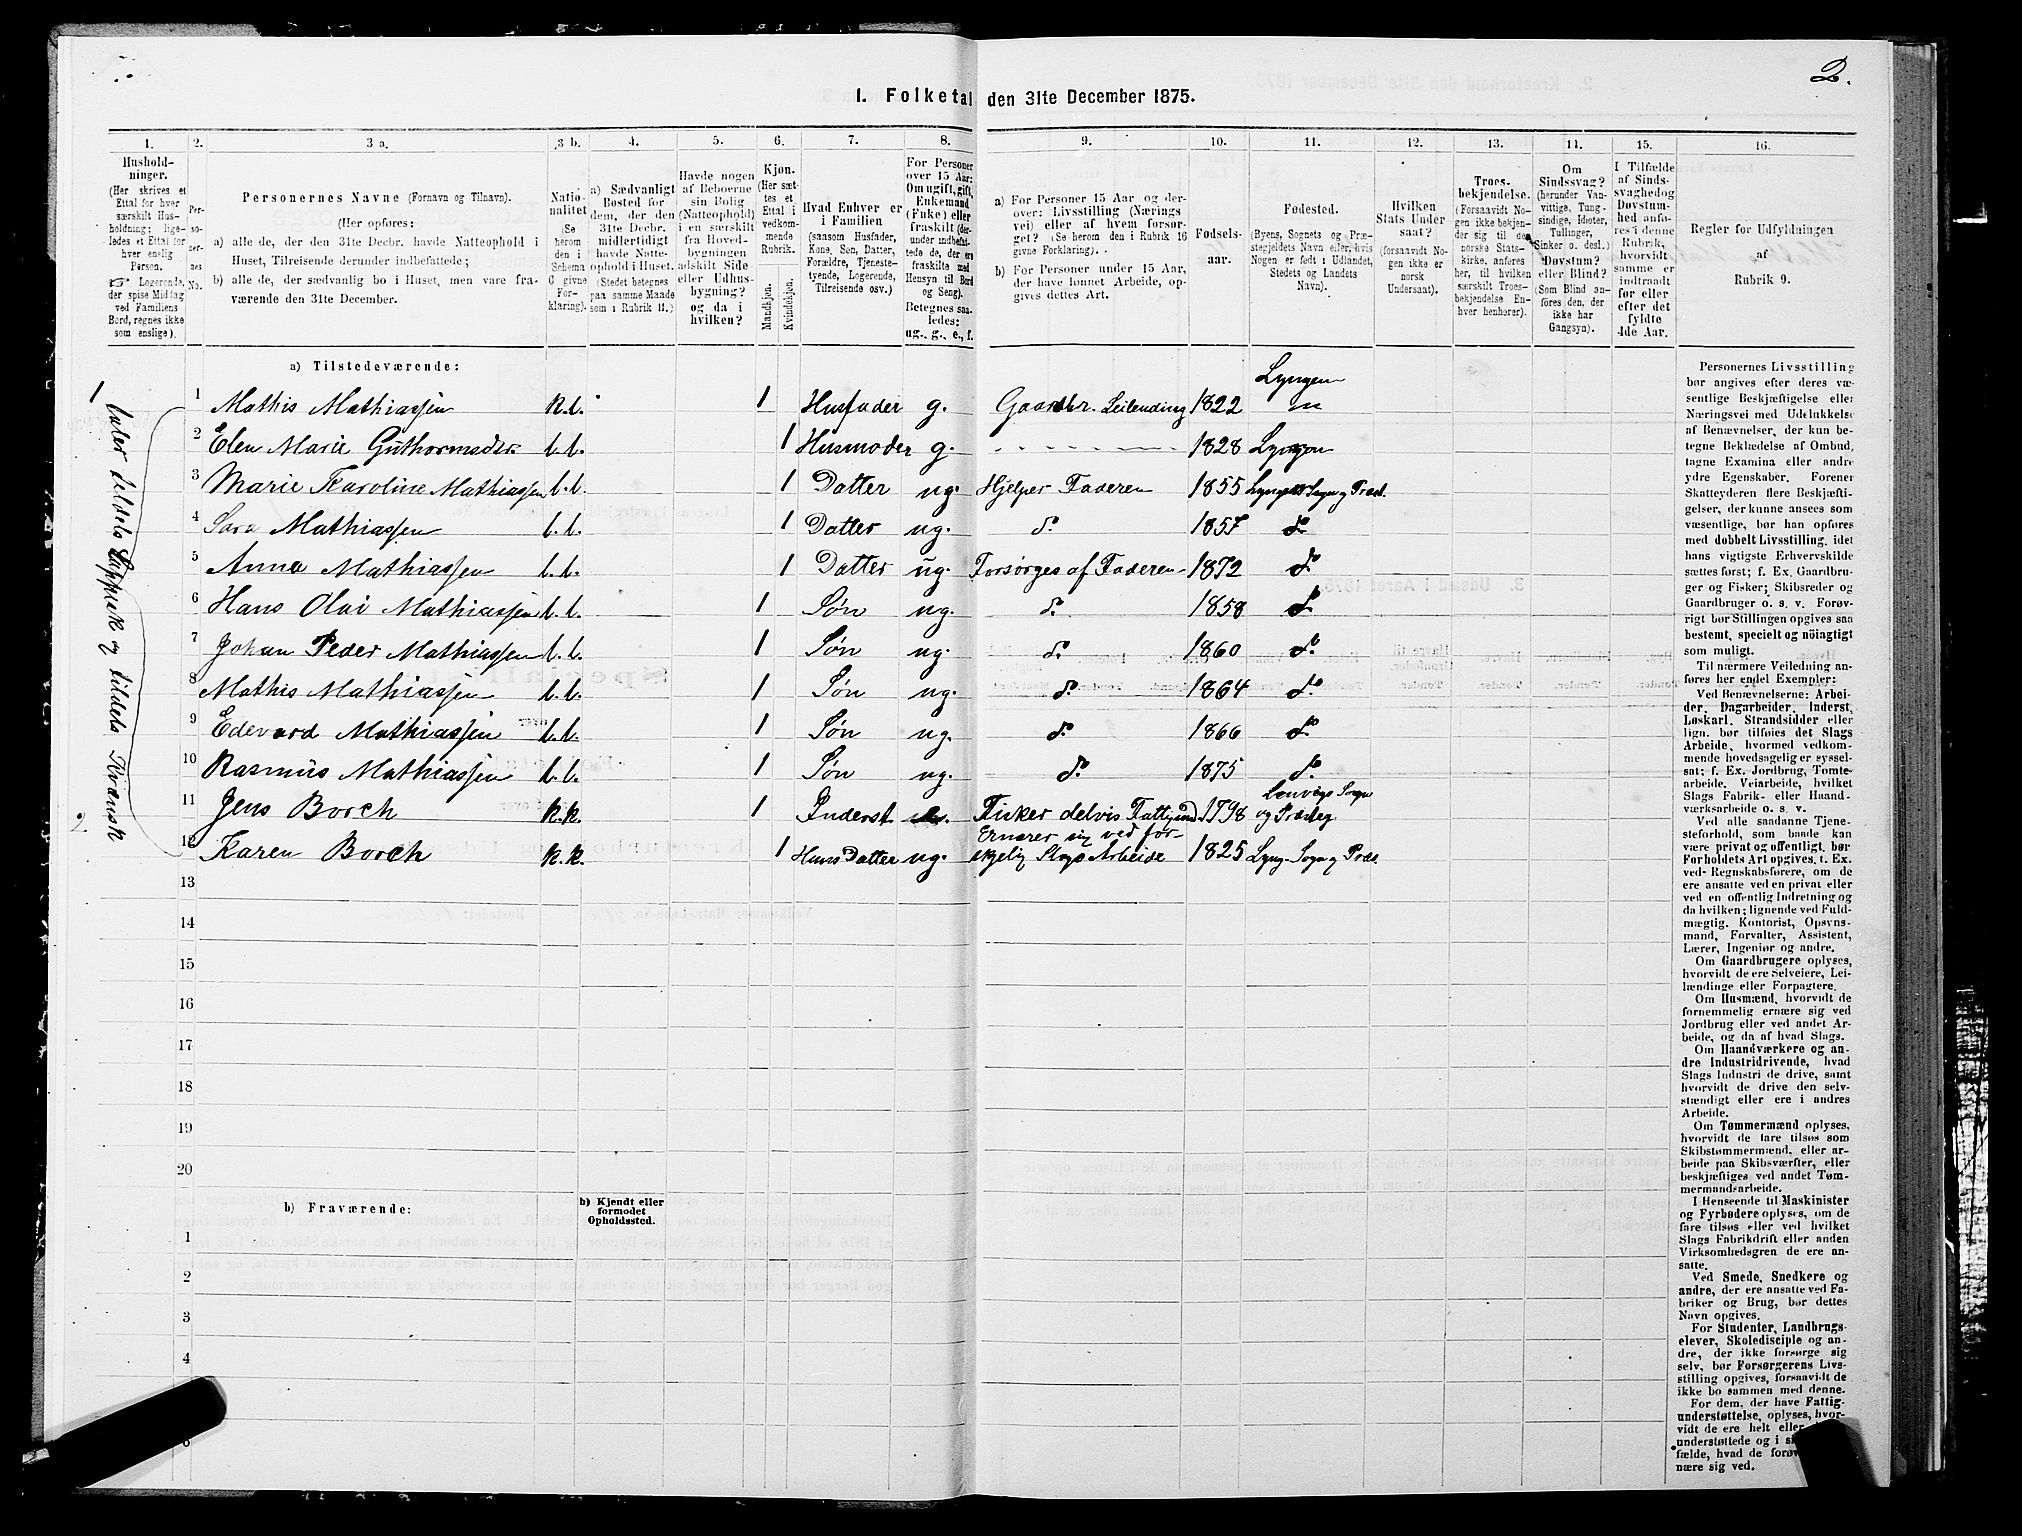 2.
1. Folketal den 31te December 1875.
1. 2. 3 a. 3 b. 4. 5. 6. 7. 8. 9. 10. 11. 12. 13. 14. 15. 16.
Hushold-
ninger.
(Her skrives et
Ettal for hver
særskilt Hus-
holdning; lige-
ledes et Ettal for
hver enslig
Person.
Logerende,
der spise Middag
ved Familiens
Bord, regnes ikke
som enslige).
Per-
so-
ner-
nes
No.
Personernes Navne (Fornavn og Tilnavn).
(Her opføres:
a) alle de, der den 31te Decbr. havde Natteophold i
Huset, Tilreisende derunder indbefattede;
b) alle de, der sædvanlig bo i Huset, men vare fra-
værende den 31te December.
Natio-
nalitet
(Se
herom
den i
Schema
C givne
For-
klaring).
a) Sædvanligt
Bosted for
dem, der den
31te Decbr.
midlertidigt
havde Natte-
ophold i Huset.
(Stedet betegnes
paa samme Maade
som i Rubrik 11.)
Havde nogen
af Beboerne
sin Bolig
(Natteophold)
i en særskilt
fra Hoved-
bygningen
adskilt Side
eller Udhus-
bygning?
og da i
hvilken?
Kjøn.
(Her sæt-
tes et
Ettal i
vedkom-
mende
Rubrik.
Mandkjøn.
Kvindekjøn.
Hvad Enhver er
i Familien
(saasom Husfader,
Kone, Søn, Datter,
Forældre, Tjeneste-
tyende, Logerende,
Tilreisende osv.)
For Personer
over 15 Aar:
Om ugift, gift,
Enkemand
(Enke) eller
fraskilt (der-
under indbefat-
tede de, der ere
fraskilte med
Hensyn til Bord
og Seng).
Betegnes saa-
ledes:
ug., g., e., f.
a) For Personer 15 Aar og der-
over: Livsstilling (Nærings
vei) eller af hvem forsør-
get? (Se herom den i Rubrik 16
givne Forklaring).
b) For Personer under 15 Aar,
der have lønnet Arbeide, op-
gives dettes Art.
Fødsels-
aar.
Fødested.
(Byens, Sognets og Præ-
stegjeldets Navn eller, hvis
Nogen er født i Udlandet,
Stedets og Landets
Navn).
Hvilken
Stats Under
saat?
(forsaavidt No-
gen ikke er
norsk
Undersaat).
Troes-
bekjendelse.
(Forsaavidt No-
gen ikke bekjen-
der sig til den
norske Stats-
kirke, anføres
her, til hvilken
særskilt Troes-
bekjendelse En-
hver henhører).
Om
Sindssvag?
(herunder Van-
vittige, Tung-
sindige, Idioter,
Tullinger,
Sinker o. desl.)
Døvstum?
eller Blind?
(Som Blind an-
føres den, der
ikke har
Gangsyn).
I Tilfælde
af Sinds-
svaghed og
Døvstum-
hed anfø-
res i denne
Rubrik,
hvorvidt
samme er
indtraadt
før eller
efter det
fyldte
4de Aar.
Regler for Udfyldningen
af
Rubrik 9.
a) Tilstedeværende:
1 taler tildels Lappisk og tildels Kvænsk
1 Mathis Mathiassen 1 Husfader g. Gaardbr. Leilending 1822 Lyngen
2 Elen Marie Guthormsdtr b.b. 1 Husmoder g. 1828 Lyngen
3 Marie Karoline Mathiassen b.b. 1 Datter ug. Hjelper Faderen 1855 Lyngens Sogn og Præst.
4 Sara Mathiassen b.b. 1 Datter ug. do. 1857 do.
5 Anna Mathiassen b.b. 1 Datter ug. Forsørges af Faderen 1872 do.
6 Hans Olai Mathiassen b.b. 1 Søn ug. do. 1858 do.
7 Johan Peder Mathiassen b.b. 1 Søn ug. do. 1860 do.
8 Mathis Mathiassen b.b. 1 Søn ug. do. 1864 do.
9 Edevard Mathiassen b.b. 1 Søn ug. do. 1866 do.
10 Rasmus Mathiassen b.b. 1 Søn ug. do. 1875 do.
2 11 Jens Borch k.k. 1 Inderst e. Fisker delvis Fattigund. 1798 Lenvigs Sogn og Præsteg
12 Karen Borch k.k. 1 Hans Datter ug. Ernærer sig ved for-
skjelig Slags Arbeide 1825 Lyng. Sogn og Præs.
13
14
15
16
17
18
19
20
b) Fraværende:
b) Kjendt eller
formodet
Opholdssted.
1
2
3
4
Personernes Livsstilling
bør angives efter deres væ-
sentlige Beskjæftigelse eller
Næringsvei med Udelukkelse
af Benævnelser, der kun be-
tegne Beklædelse af Ombud,
tagne Examina eller andre
ydre Egenskaber. Forener
Skatteyderen flere Beskjæfti-
gelser, der kunne ansees som
væsentlige, bør han opføres
med dobbelt Livsstilling, idet
hans vigtigste Erhvervskilde
sættes først; f. Ex. Gaardbru-
ger og Fisker; Skibsreder og
Gaardbruger o. s. v. Forøv-
rigt bør Stillingen opgives saa
bestemt, specielt og nøiagtigt
som muligt.
Til nærmere Veiledning an-
føres her endel Exempler:
Ved Benævnelserne: Arbei-
der, Dagarbeider, Inderst,
Løskarl, Strandsidder eller
lign. bør tilføies det Slags
Arbeide, hvormed vedkom-
mende hovedsagelig er syssel-
sat; f. Ex. Jordbrug, Tomte-
arbeide, Veiarbeide, hvilket
Slags Fabrik- eller Haand-
værksarbeide o. s. v.
Ved alle saadanne Tjene-
steforhold, som baade kan
være privat og offentligt, bør
Forholdets Art opgives, t. Ex.
ved Regnskabsførere, om de
ere ansatte ved en privat eller
ved en offentlig Indretning og
da hvilken; lignende ved Fuld-
mægtig, Kontorist, Opsyns-
mand, Forvalter, Assistent,
Lærer, Ingeniør og andre.
Om Gaardbrugere oplyses,
hvorvidt de ere Selveiere, Lei-
lændinge eller Forpagtere.
Om Husmænd, hvorvidt de
fornemmelig ernære sig ved
Jordbrug eller ved andet Ar-
beide, og da af hvad Slags.
Om Haandværkere og an-
dre Industridrivende, hvad
Slags Industri de drive, samt
hvorvidt de drive den selv-
stændigt eller ere i andres
Arbeide.
Om Tømmermænd oplyses,
hvorvidt de fare tilsøs som
Skibstømmermænd, eller ar-
beide paa Skibsværfter, eller
beskjæftiges ved andet Tøm-
mermandsarbeide.
I Henseende til Maskinister
og Fyrbødere oplyses, om de
fare tilsøs eller ved hvilket
Slags Fabrikdrift eller anden
Virksomhedsgren de ere an-
satte.
Ved Smede, Snedkere og
andre, der ere ansatte ved Fa-
briker og Brug, bør dettes
Navn opgives.
For Studenter, Landbrugs-
elever, Skoledisciple og an-
dre, der ikke forsørge sig
selv, bør Forsørgerens Livs-
stilling opgives, forsaavidt de
ikke bo sammen med denne.
For dem, der have Fattig-
understøttelse, oplyses, hvor-
vidt de ere helt eller
understøttede og i
fælde, hvad de forøv
nære sig ved.